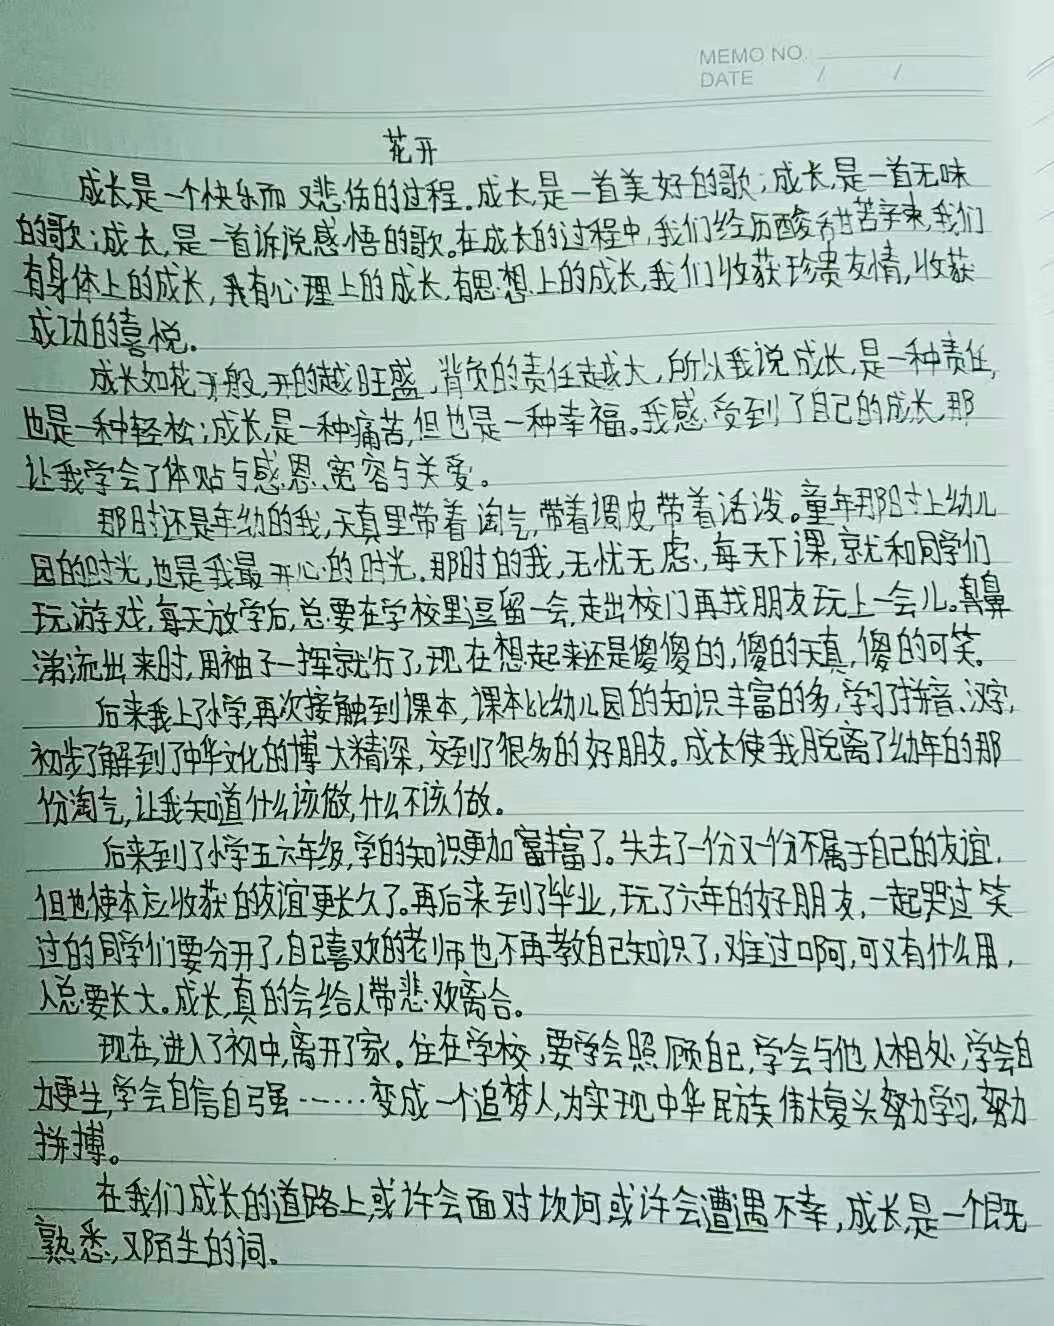 MEMO NO.
DATE / /
花开
成长,是一个快乐而又悲伤的过程。成长,是一首美好的歌;成长,是一首无味
的歌;成长,是一首诉说感悟的歌。在成长的过程中,我们经历酸甜苦辛来,我们
有身体上的成长,我有心理上的成长,有思想上的成长,我们收获珍贵友情,收获
成功的喜悦。
成长如花开般,开的越旺盛,背负的责任越大,所以我说成长,是一种责任,
也是一种轻松;成长,是一种痛苦,但也是一种幸福。我感受到了自己的成长,那
让我学会了体贴与感恩、宽容与关爱。
那时还是年幼的我,天真里带着淘气,带着调皮,带着活泼。童年那时上幼儿
园的时光,也是我最开心的时光。那时的我,无忧无虑,每天下课,就和同学们
玩游戏,每天放学后,总要在学校里逗留一会,走出校门再找朋友玩上一会儿。鼻
涕流出来时,用袖子一挥就行了,现在想起来还是傻傻的,傻的天真,傻的可笑。
后来我上了小学,再次接触到课本,课本比幼儿园的知识丰富的多,学习了拼音、汉字,
初步了解到了中华文化的博大精深,交到了很多的好朋友。成长使我脱离了幼年的那
份淘气,让我知道什么该做,什么不该做。
后来到了小学五六年级,学的知识更加丰富了。失去了一份又一份不属于自己的友谊,
但也使本应收获的友谊更长久了。再后来到了毕业,玩了六年的好朋友,一起哭过笑
过的同学们要分开了,自己喜欢的老师也不再教自己知识了,难过啊,可又有什么用,
人总要长大。成长,真的会给人带悲欢离合。
现在,进入了初中,离开了家。住在学校,要学会照顾自己,学会与他人相处,学会自
力更生,学会自信自强……变成一个追梦人,为实现中华民族伟大复兴努力学习,努力
拼搏。
在我们成长的道路上,或许会面对坎坷或许会遭遇不幸,成长,是一个既
熟悉,又陌生的词。